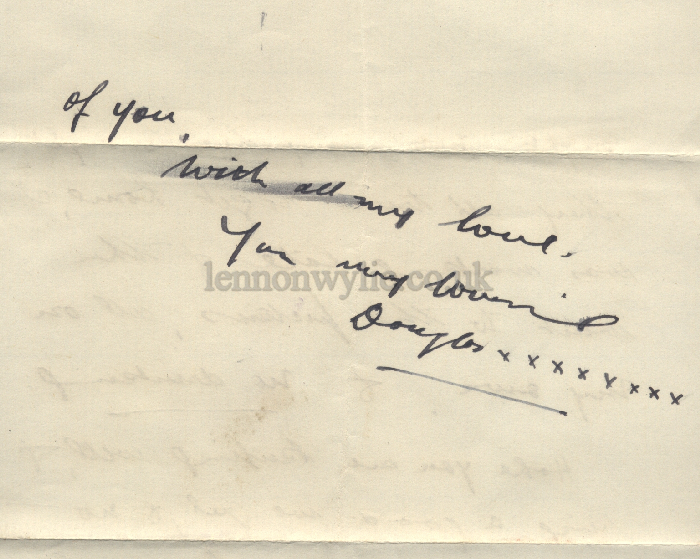 of you.
With all my love.
You my loving
Douglas x x x x x x x x
lennonwylie.co.uk